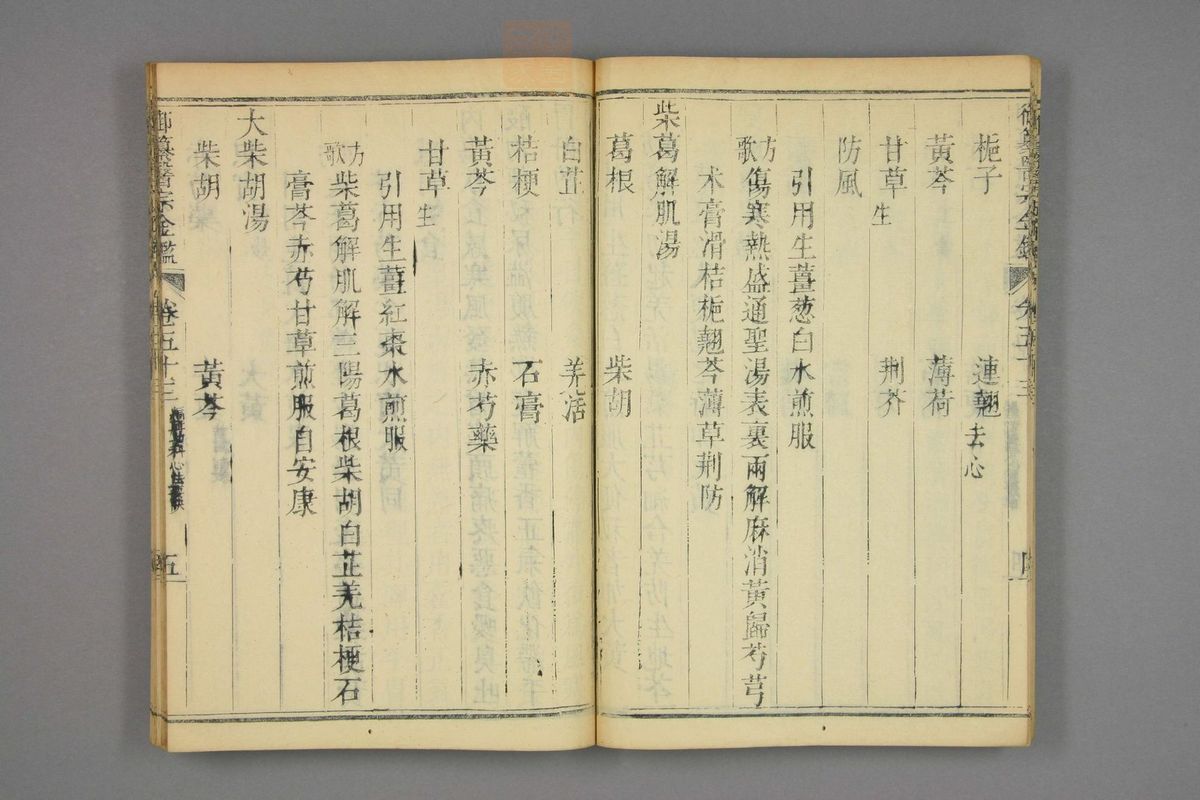 梔子　連翹去心
黃芩　薄荷
甘草生　荆芥
防風
引用生薑葱白水煎服
方歌　傷寒熱盛通聖湯表裏兩解麻消黃歸芍芎
朮膏滑桔梔翹芩薄草荆防
柴葛解肌湯
葛根　柴胡
白芷　羌活
桔梗　石膏
黃芩　赤芍藥
甘草生
引用生薑紅棗水煎服
方歌　柴葛解肌解三陽葛根柴胡白芷羌桔梗石
膏芩赤芍甘草煎服自安康
大柴胡湯
柴胡　黃芩
御纂醫宗金鑑　卷五十三　心法要訣　五